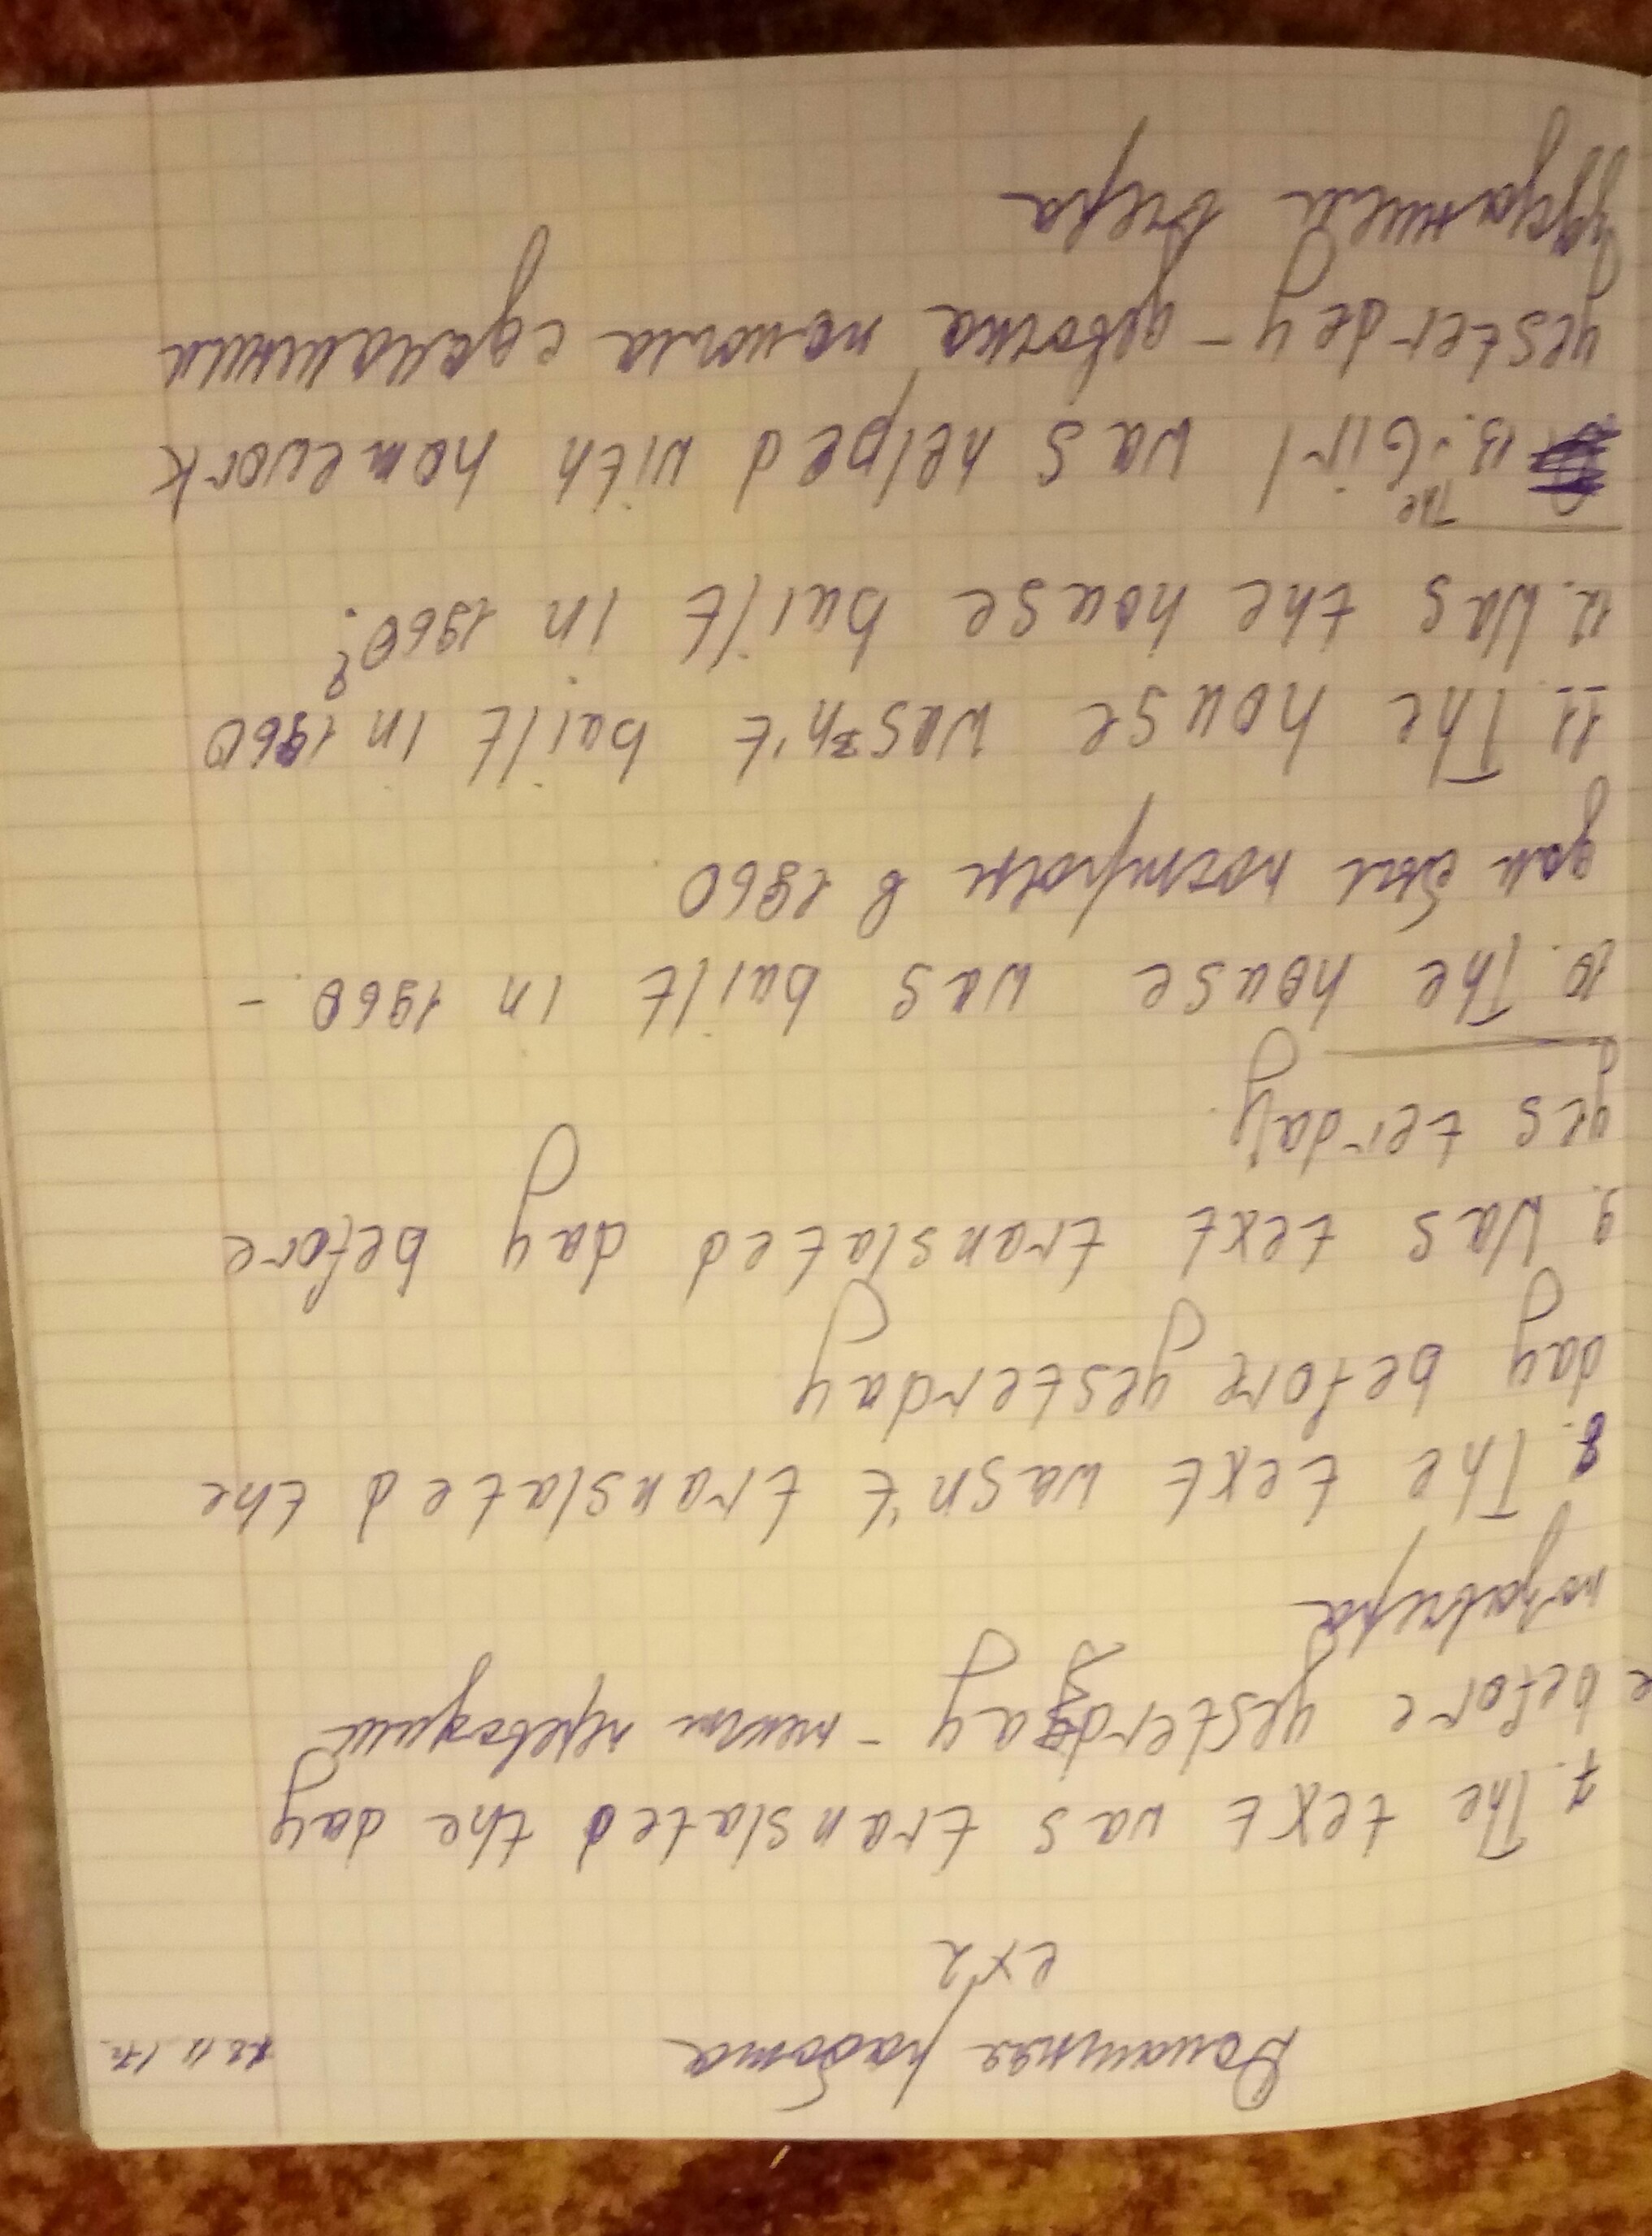 Домашняя работа
ex 2
7. The text was translated the day
before yesterday - текст переводили
позавчера
8. The text wasn't translated the
day before yesterday
9. Was text translated day before
yesterday
10. The house was built in 1960. -
дом был построен в 1960
11. The house wasn't built in 1960
12. Was the house built in 1960?
13. The Girl was helped with homework
yesterdey - девочка
вчера